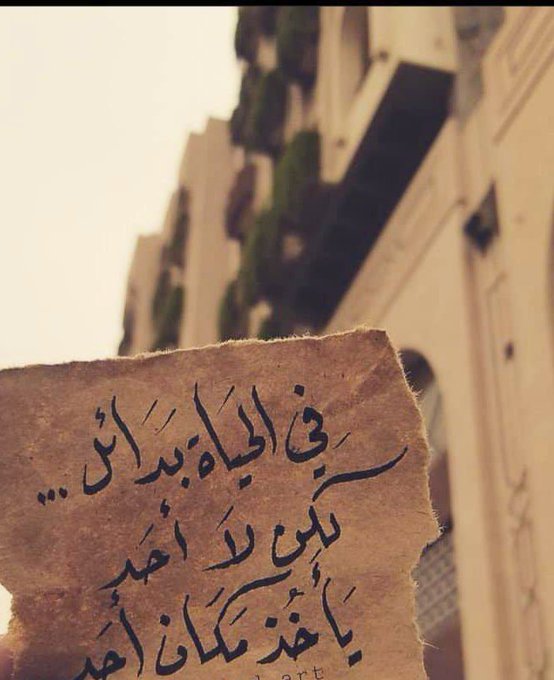 فِي الحَيَاة بَدَائل ...
لكِن لاَ أحَد
يَأخُذ مَكَان أحَد
art